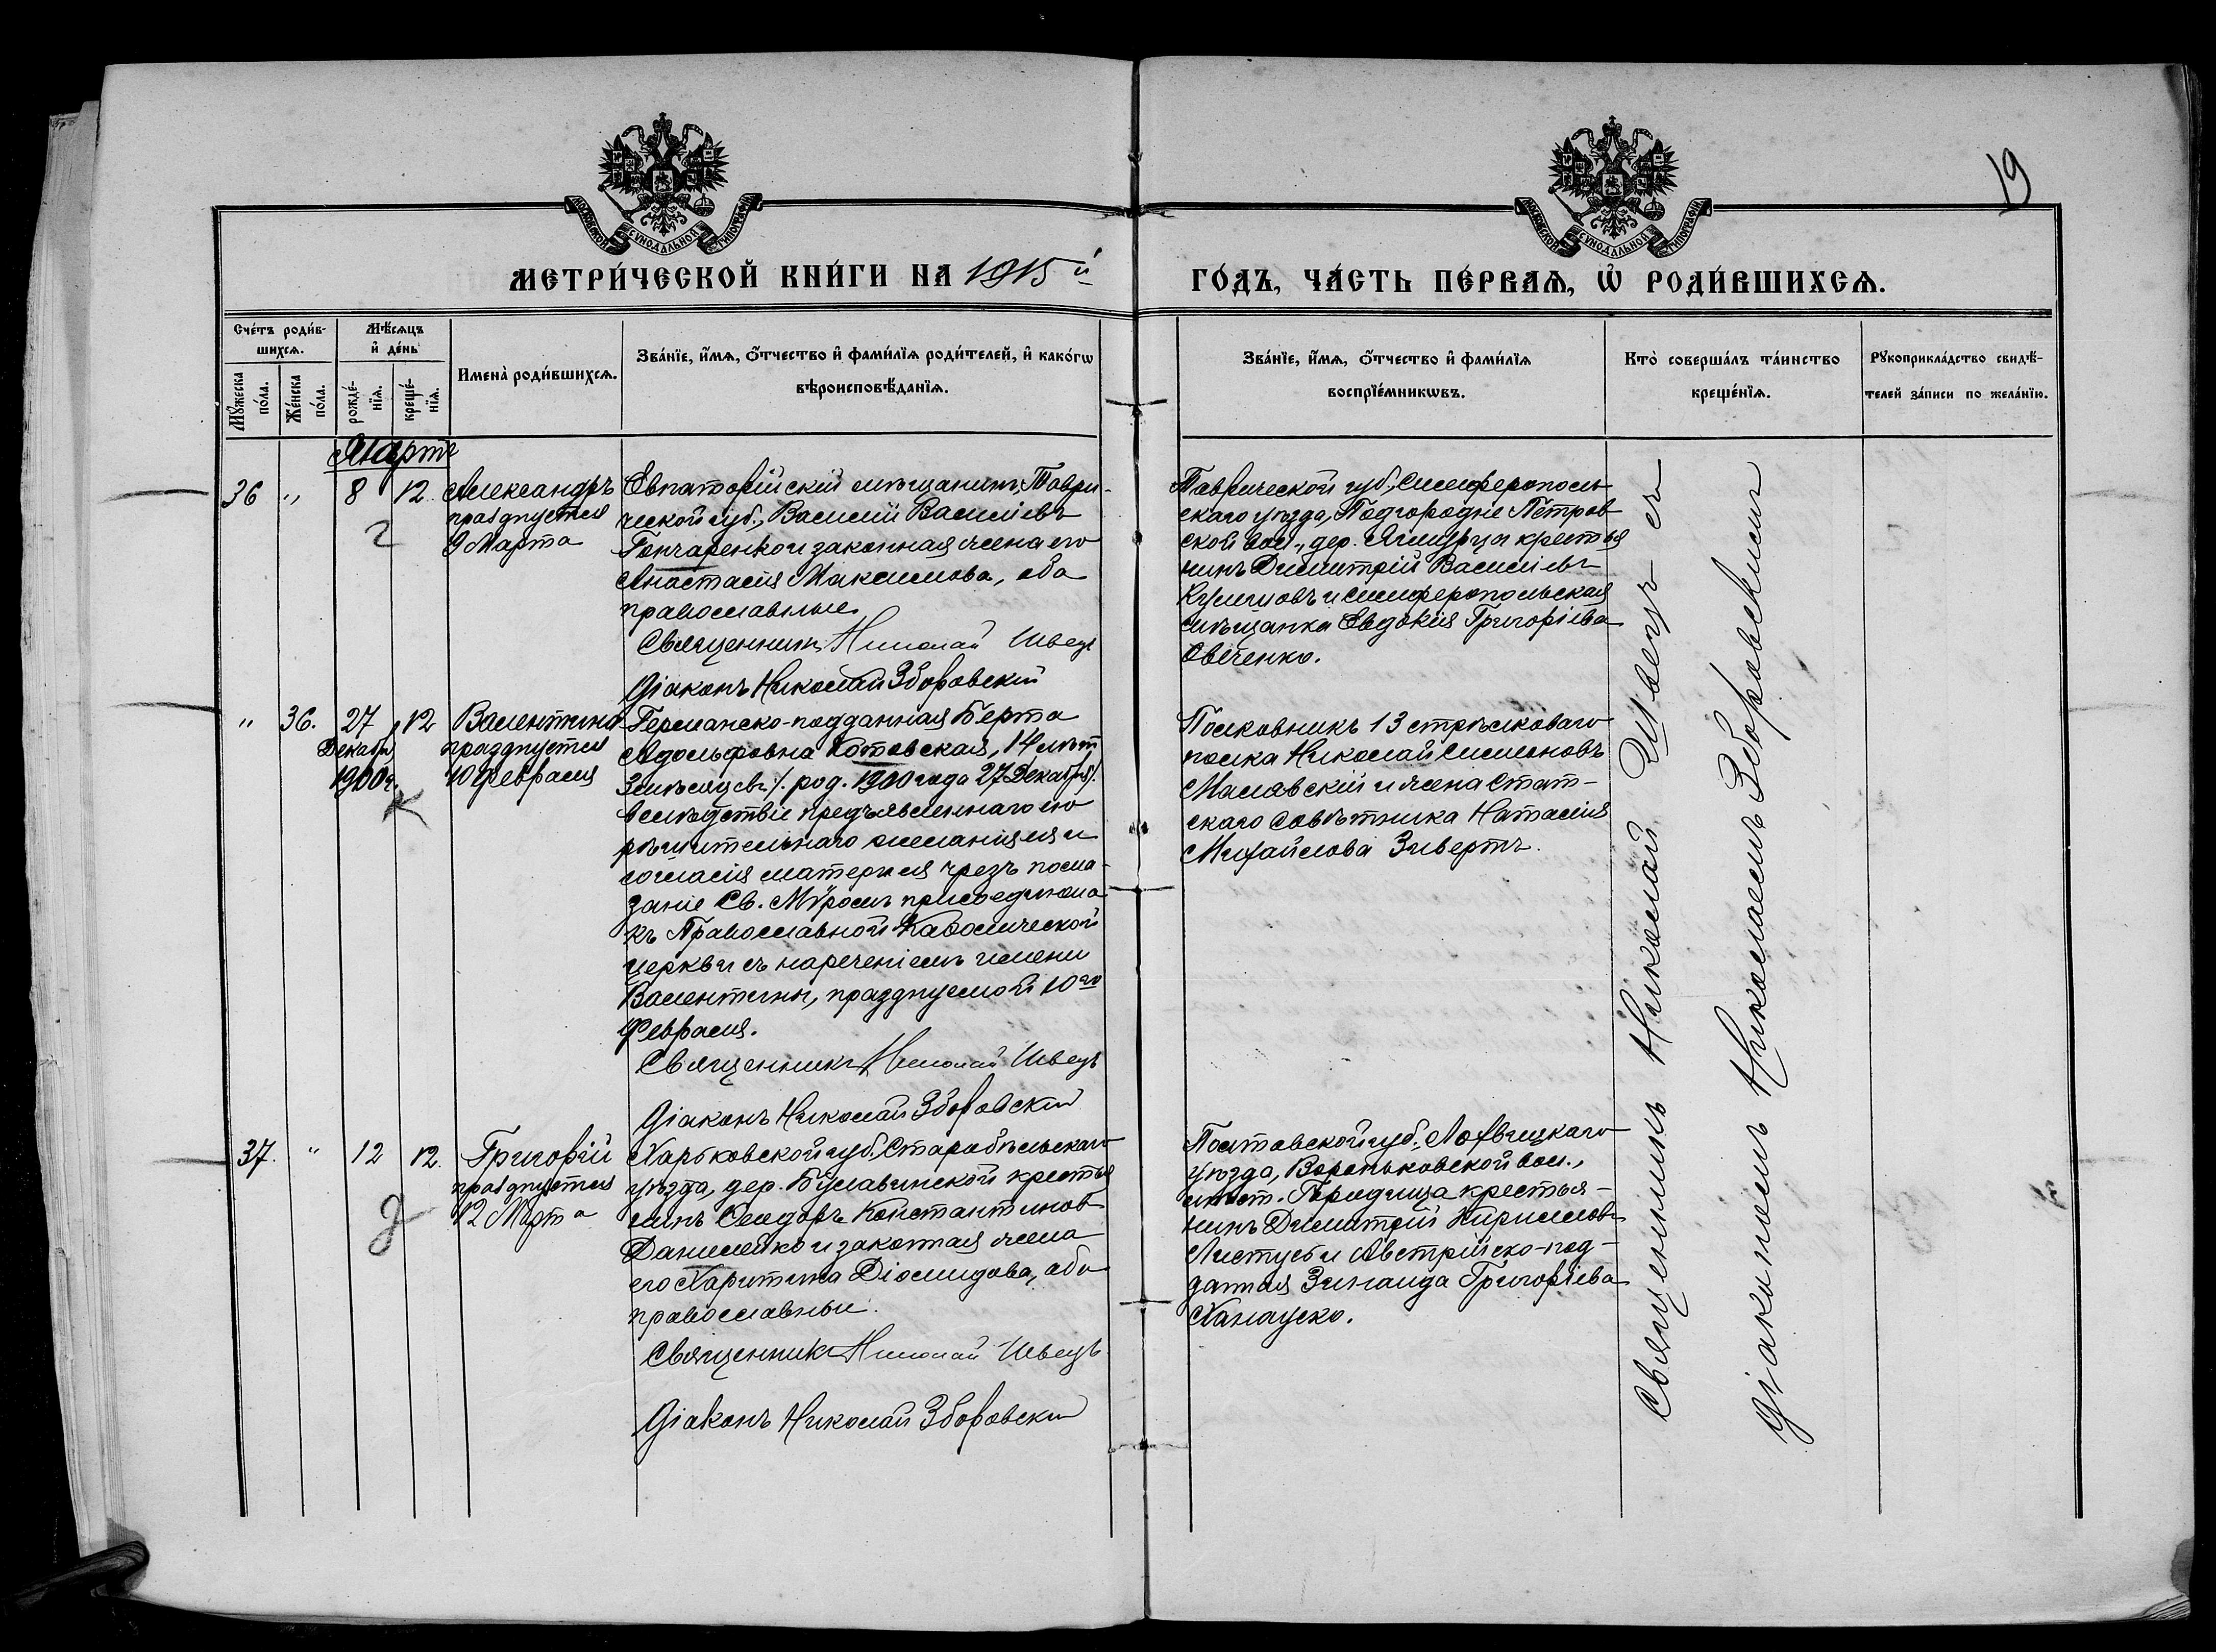 19
МОСКОВСКОЙ СѴНОДАЛЬНОЙ ТИПОГРАФІИ
МОСКОВСКОЙ СѴНОДАЛЬНОЙ ТИПОГРАФІИ
МЕТРИ́ЧЕСКОЙ КНИ́ГИ НА 1915й
ГО́ДЪ, ЧА́СТЬ ПЕ́РВАѦ, Ѡ҆ РОДИ́ВШИХСѦ.
Сче́тъ роди́в-
шихсѧ.
Мꙋ́жеска по́ла.
Же́нска по́ла.
Мѣ́сѧцъ
и҆ де́нь
рожде́-
нїѧ.
креще́-
нїѧ.
Имена̀ роди́вшихсѧ.
Зва́нїе, и҆́мѧ, ѻ҆́тчество и҆ фами́лїѧ роди́телей, и҆ како́гѡ
вѣроисповѣ́данїѧ.
Зва́нїе, и҆́мѧ, ѻ҆́тчество и҆ фами́лїѧ
воспрїе́мникѡвъ.
Кто̀ соверша́лъ та́инство
креще́нїѧ.
Рꙋкоприкла́дство свидѣ́-
телей за́писи по жела́нїю.
Мартъ
36 „ 8 12. Александръ
празднуется
9 Марта
Евпаторійскій мѣщанинъ, Таври-
ческой губ., Василій Васильевъ
Гончаренко и законная жена его
Анастасія Максимова, оба
православные.
Священникъ Николай Швецъ
Діаконъ Николай Зборовскій
Таврической губ., Симферополь-
скаго уѣзда, Подгородне Петров-
ской вол., дер. крестья
нинъ Димитрій Васильевъ
Кулешовъ и симферопольская
мѣщанка Евдокія Григоріева
Овіченко.
„ 36. 27 12 Валентина
Декабря празднуется
1900г. 10 февраля
Германско-подданная Берта
Адольфовна Котовская, 14 лѣтъ
3 мѣсяцевъ /: род. 1900 года 27 Декабря:/
вслѣдствіе предъявленнаго ею
рѣшительнаго желанія и
согласія матери ея чрезъ пома-
заніе Св. Мѵромъ присоединена
къ Православной Каѳолической
церкви съ нареченіемъ имени
Валентины, празднуемой 10го
Февраля.
Священникъ Николай Швецъ
Діаконъ Николай Зборовскій
Полковникъ 13 стрѣлковаго
полка Николай Симоновъ
Малявскій и жена Стат-
скаго Совѣтника Наталія
Михайлова Зивертъ.
37. „ 12 12. Григорій
празднуется
12 Марта
Харьковской губ. Старобѣльскаго
уѣзда, дер. Булавинской крестья
нинъ Ѳеодоръ Константинов
Данилейко и законная жена
его Харитина Діомидова, оба
православные.
Священникъ Николай Швецъ
Діаконъ Николай Зборовскій
Полтавской губ., Лохвицкаго
уѣзда, Вороньковской вол.,
мѣст. Городища крестья-
нинъ Димитрій Кирилловъ
Листус и Австрійско-под-
данная Зинаида Григоріева
Ханауско.
Священникъ Николай Швецъ съ
діакономъ Николаемъ Зборовскимъ